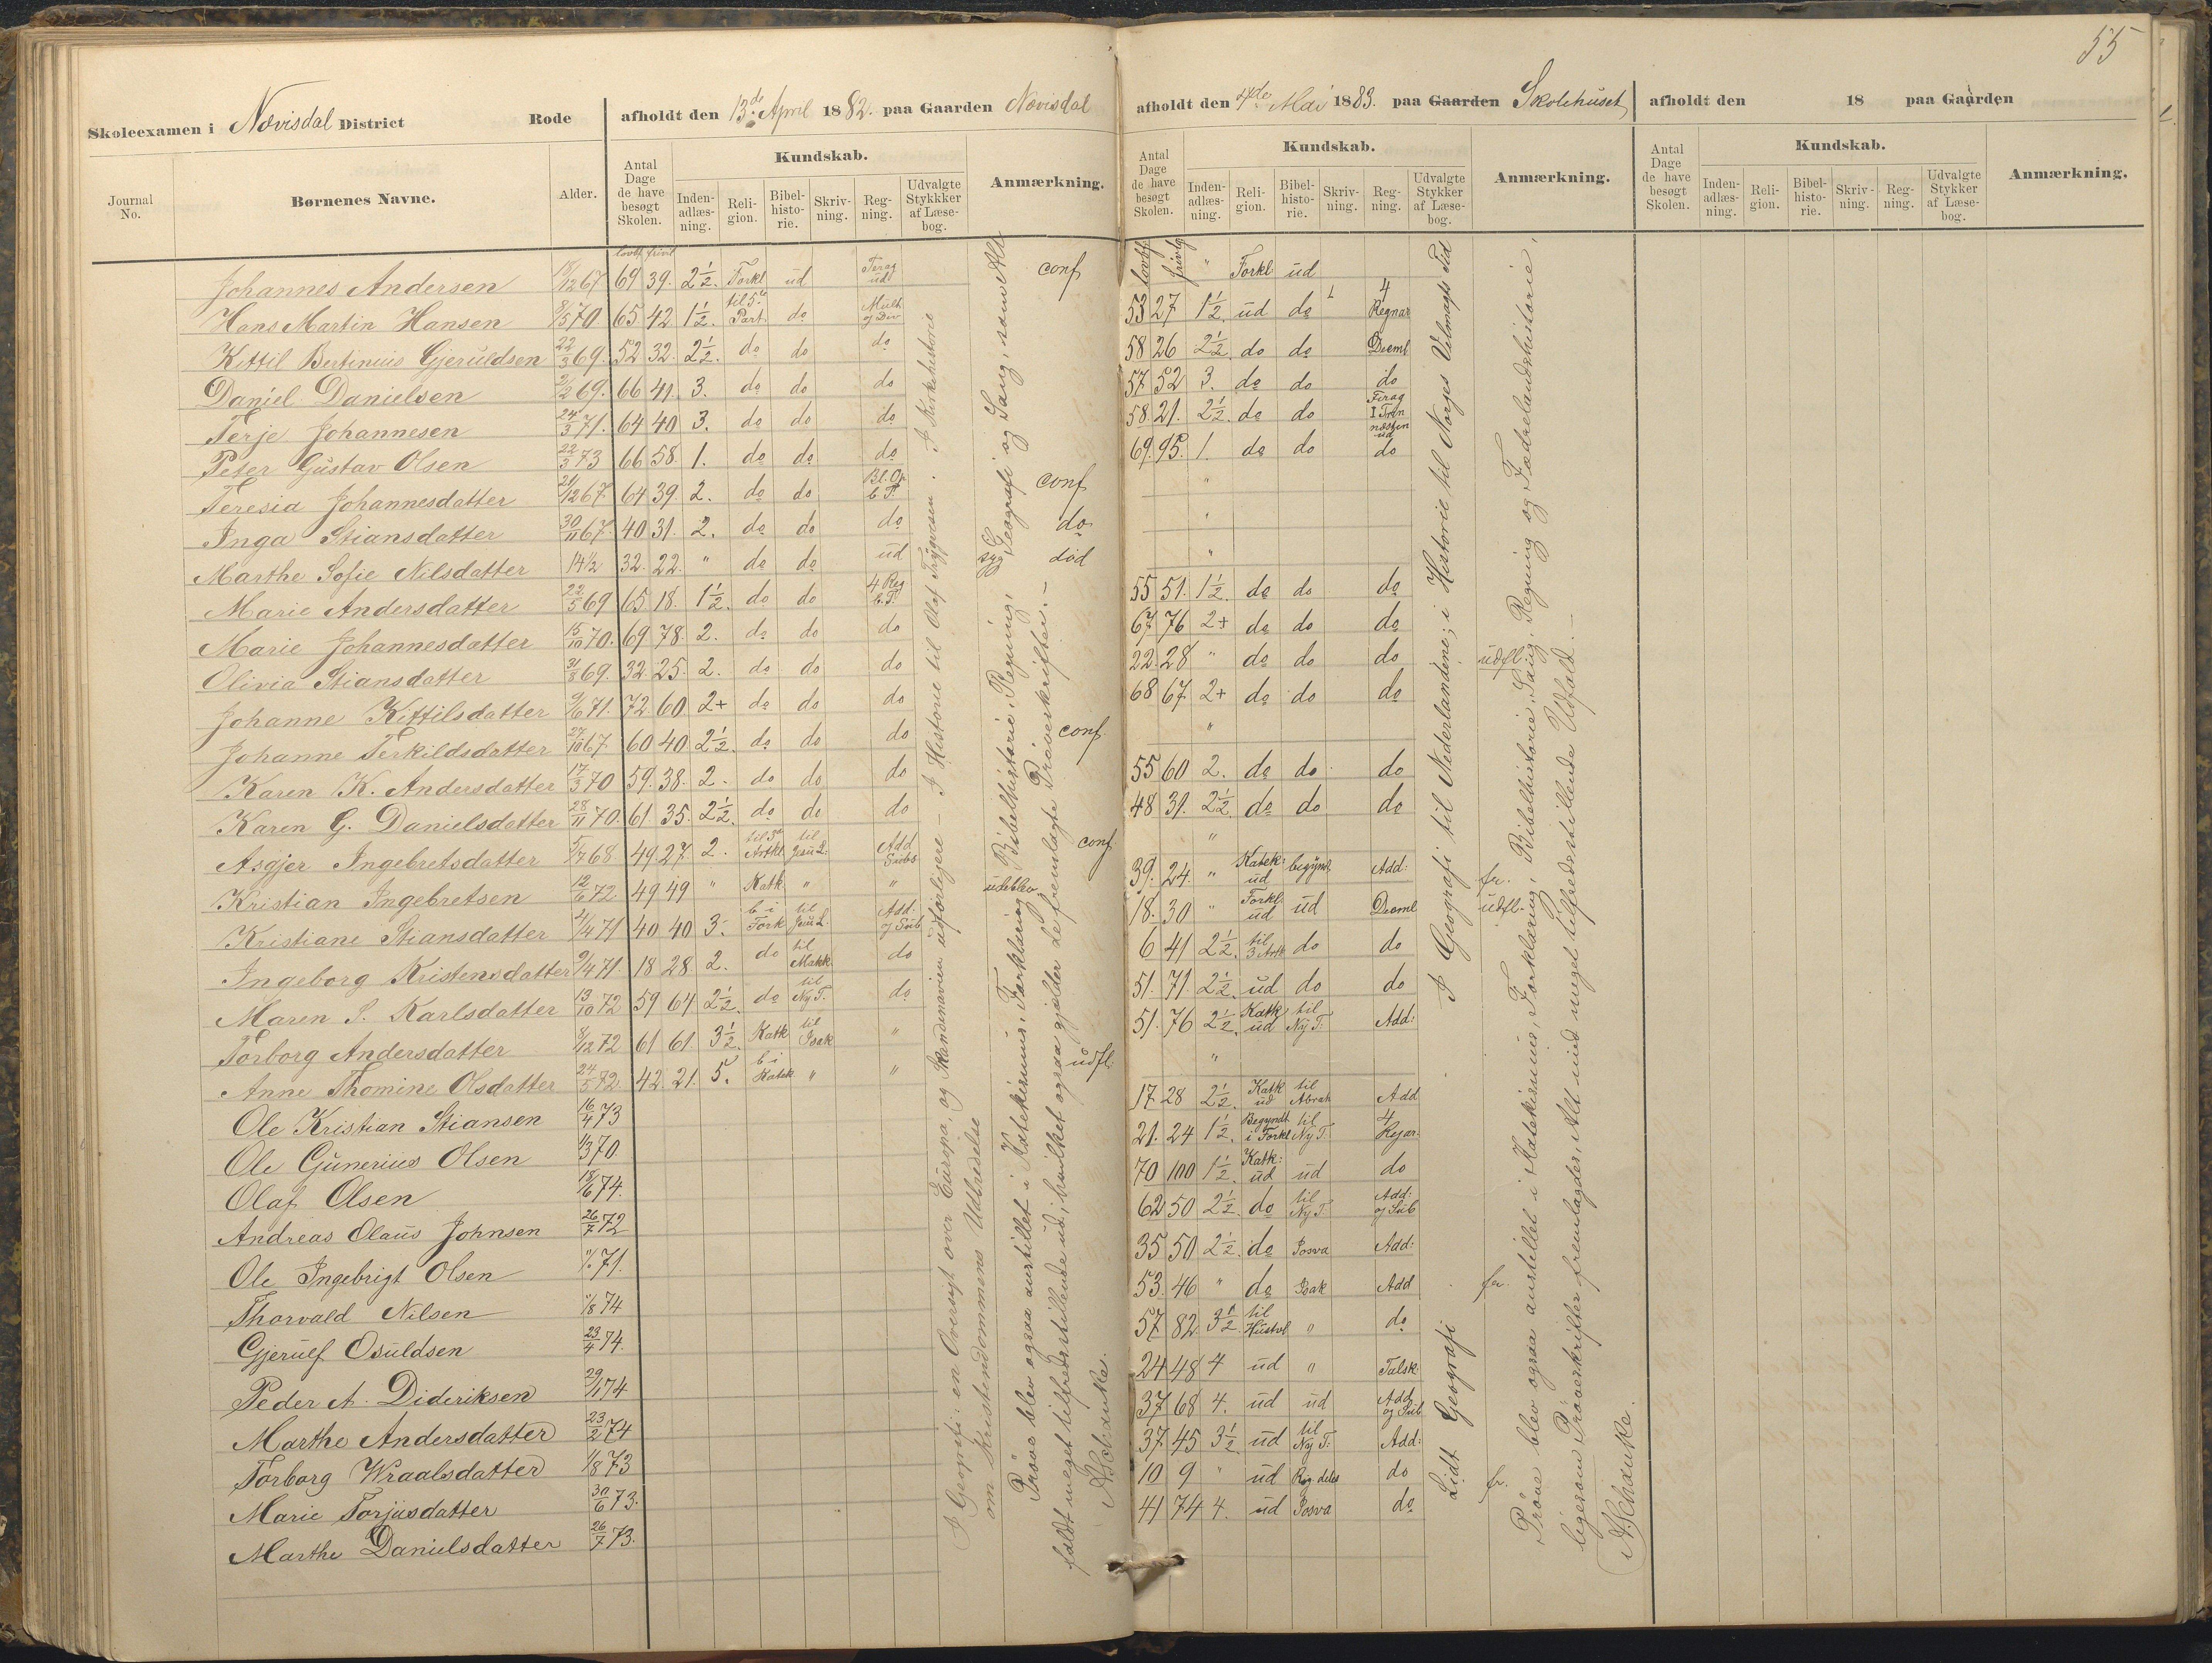 55
Skoleexamen i Nævisdal District Rode afholdt den 13de April 1882. paa Gaarden Nævisdal
Journal No. Børnenes Navne. Alder. Antal Dage de have besøgt Skolen. Kundskab. Inden-adlæs-ning. Reli-gion. Bibel-histo-rie. Skriv-ning. Reg-ning. Udvalgte Stykkker af Læse-bog. Anmærkning.
lovbf frivil
Johannes Andersen 67 69 39. 2½. Forkl ud Tirag ud conf
Hans Martin Hansen 8/5 70 65 42 1½. til 5te Part. do Mult og Div
Kittil Bertinius Gjeruldsen 22/3 69. 52 32. 2½. do do do
Daniel Danielsen 2/2 69. 66 41. 3. do do do
Terje Johannesen 24/3 71. 64 40 3. do do do
Peter Gustav Olsen 22/3 73 66 58. 1. do do do
Teresia Johannesdatter 21/12 67 64 39. 2. do do conf
Inga Stiansdatter 30/11 67. 40 31. 2. do do do do
Marthe Sofie Nilsdatter 14½ 32. 22. " do do ud syg död
Marie Andersdatter 22/5 69 65. 18. 1½. do do 4 Reg
Marie Johannesdatter 15/10 70. 69. 78. 2. do do do
Olivia Stiansdatter 31/8 69. 32. 25. 2. do do do
Johanne Kittilsdatter 9/6 71. 72. 60 2+ do do do
Johanne Terkildsdatter 27/10 67 60 40. 2½. do do do conf.
Karen K. Andersdatter 17/3 70 59. 38. 2. do do do
Karen G. Danielsdatter 28/11 70. 61. 35. 2½. do do do
Asgjer Ingebretsdatter 5/7 68 49. 27 2. til 3d Artkl til Jesu L. Add Subs conf
Kristian Ingebretsen 12/6 72. 49 49 " Katk " " udeblev
Kristiane Stiansdatter 2/4 71 40 40 3. b i Fork til Jesu L. Add: og Sub
Ingeborg Kristensdatter 9/4 71. 18 28 2. do til Makk. do
Maren S. Karlsdatter 13/10 72 59 64 2½. do til Ny T. do
Torborg Andersdatter 8/12 72 61 61. 3½. Katk til Isak "
Anne Thomine Olsdatter 24/5 72. 42. 21. 5. b i Katek " " udfl.
Ole Kristian Stiansen 16/4 73
Ole Gunerius Olsen 1/3 70.
Olaf Olsen 18/6 74.
Andreas Olaus Johnsen 26/7 72
Ole Ingebrigt Olsen 71.
Thorvald Nilsen 74
Gjerulf Osuldsen 23/4 74.
Peder A. Dideriksen 29/1 74
Marthe Andersdatter 23/2 74
Torborg Wraalsdatter 1/8 73
Marie Torjusdatter 30/6 73.
Marthe Danielsdatter 26/7 73.
I Geografi: en Oversigt over Europa, og Skandinavien udförligere – I Historie til Olaf Trygvesen. I Kirkehistorie
om Kristendommens Udbredelse
Pröve blev ogsaa anstillet i Katekismus, Forklaring, Bibelhistorie, Regning, Geografi og Sang, samt Alt
faldt meget tilfredsstillende ud, hvilket ogsaa gjælder de fremlagte Pröveskrifter. –
A Schanke.
afholdt den 4de Mai 1883. paa Gaarden Skolehuset
Antal Dage de have besøgt Skolen. Kundskab. Inden-adlæs-ning. Reli-gion. Bibel-histo-rie. Skriv-ning. Reg-ning. Udvalgte Stykker af Læse-bog. Anmærkning.
lovbf. frivlg " Forkl ud
53 27 1½. ud do 4 Regnar
58 26 2½. do do Deeml
57 52 3. do do do
58. 21. 2½. do do Firag I Trin næsten ud
69. 95. 1. do do do
"
"
"
55 51. 1½. do do do
67 76 2+ do do do
22. 28 " do do do udfl.
68 67. 2+ do do do
"
55 60 2. do do do
48 31. 2½. do do do
"
39. 24. " Katek: ud begynd Add: fr.
18. 30 " Forkl. ud ud Deeml udfl.
6 41 2½. til 3 Artk do do
51. 71. 2½. ud do do
51. 76 2½. Katk ud til Ny T. Add:
"
17 28 2½. Katk ud til Abrah Add
21. 24 1½. Begyndt i Forkl til Ny T. 4 Rejar.
70 100 1½. Katk: ud ud do
62 50 2½. do til Ny T. Add: og Sub
35 50 2½. do Josva Add:
53. 46 " do Isak Add fr.
57 82. 3½. til Hustvl " do
24 48 4 ud " Talsk.
37 68 4. ud ud Add og Sub
37. 45 3½. ud til Ny T: Add:
10 9 " ud do fr.
41 74 4. ud Josva do
Lidt Geografi
I Geografi til Nederlandene; i Historie til Norges Velmagts Tid
Pröve blev ogsaa anstillet i Katekismus, Forklaring, Bibelhistorie, Sang, Regning og Fædrelandshistorie,
ligesom Pröveskrifter fremlagdes, Alt med meget tilfredsstillende Udfald. –
A Schanke.
afholdt den 18 paa Gaarden
Antal Dage de have besøgt Skolen. Kundskab. Inden-adlæs-ning. Reli-gion. Bibel-histo-rie. Skriv-ning. Reg-ning. Udvalgte Stykker af Læse-bog. Anmærkning.